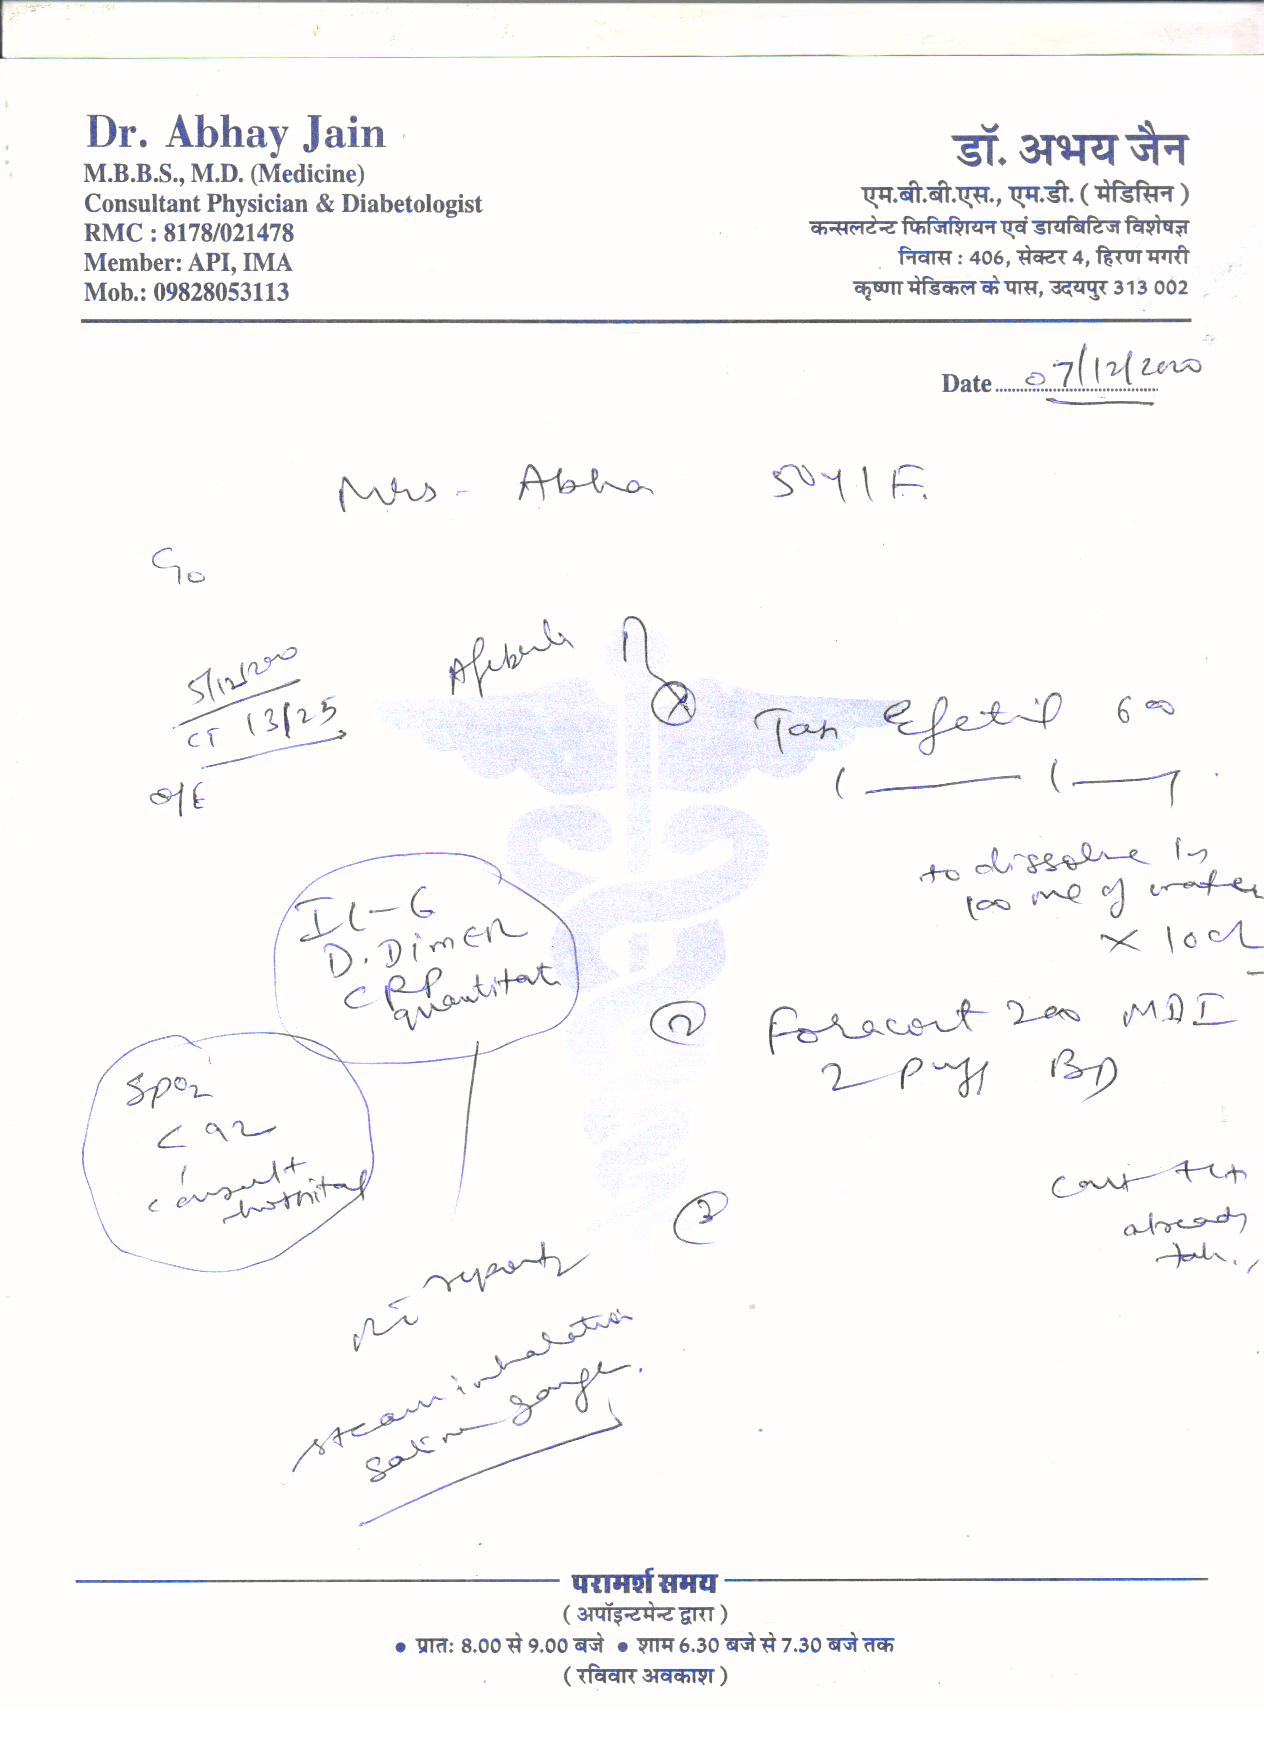 Dr. Abhay Jain
M.B.B.S., M.D. (Medicine)
Consultant Physician & Diabetologist
RMC : 8178/021478
Member: API, IMA
Mob.: 09828053113
डॉ. अभय जैन
एम.बी.बी.एस., एम.डी. ( मेडिसिन )
कन्सलटेन्ट फिजिशियन एवं डायबिटिज विशेषज्ञ
निवास : 406, सेक्टर 4, हिरण मगरी
कृष्णा मेडिकल के पास, उदयपुर 313 002
Date 07/12/2020
Mrs - Abha 50Y/F.
C/o
5/12/2020
CT 13/25
O/E
Afebrile
Tab Efetil 600
1 — 1 —
to dissolve in
100 ml of water
x 10d
IL-6
D. Dimer
CRP
quantitat
② Foracort 200 MDI
2 puff BD
SpO2
< 92
consult
hospital
③
already
reports
steam inhalation
saline gargle.
परामर्श समय
( अपॉइन्टमेन्ट द्वारा )
• प्रात: 8.00 से 9.00 बजे • शाम 6.30 बजे से 7.30 बजे तक
( रविवार अवकाश )